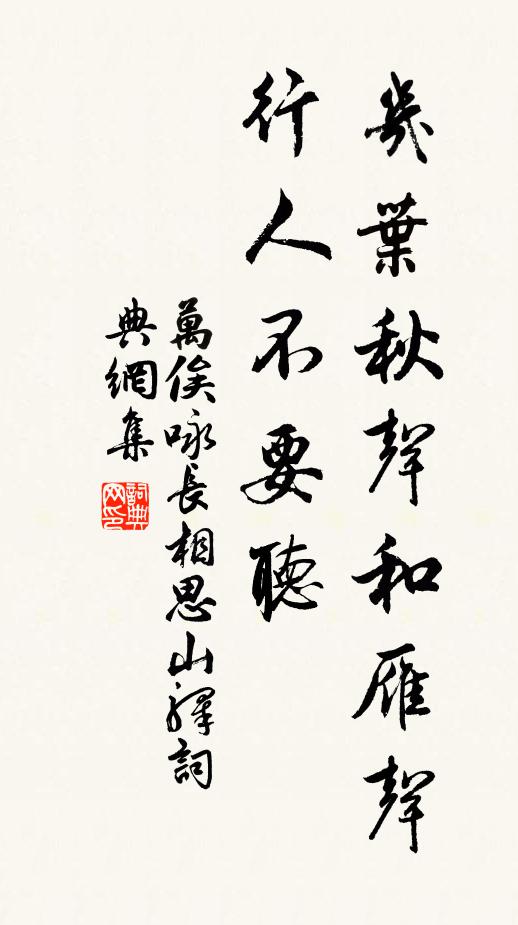 幾葉秋聲和雁聲
行人不要聽
萬俟咏長相思山驛詞
典網集
詞典
网印